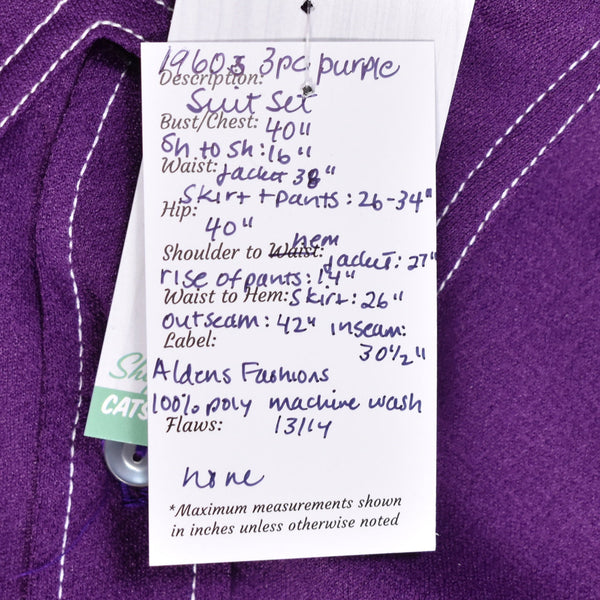 1960s 3pc purple
Description:
Suit Set
Bust/Chest: 40"
Sh to sh: 16"
Waist: Jacket 38"
Skirt + pants: 26-34"
Hip:
40"
hem
Shoulder to Waist: Jacket: 27"
rise of pants: 14"
Waist to Hem: Skirt: 26"
outseam: 42" inseam:
Label: 30 1/2"
Aldens Fashions
100% poly machine wash
Flaws: 13/14
none
*Maximum measurements shown
in inches unless otherwise noted
CATS